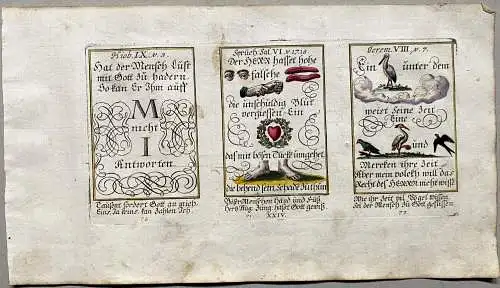 Hiob. IX. v. 3.
Hat der Mensch Lust
mit Gott zu hadern.
So kan Er Ihm auff
M
nicht
I
Antworten.
Tausent fordert Gott an
Eins, Ja keins kan Zahlen Ich.
Sprüch Sal. VI. v. 17. 18.
Der HERR hasset hohe
falsche
die unschuldig Blut
vergiessen. Ein
das mit bösen Tucken umgehet
die behend sein, Schade zu thun
Böser Menschen Hand und Füß
Herz, Aug, Zung, hasst Gott gewiß
XXIV.
Jerem. VIII. v. 7.
Ein
unter dem
weist seine Zeit
Eine
und
Mercken ihre Zeit
Aber mein volck will das
Recht des HERRN nicht wissen
Wie ihr Zeit die Vögel wissen
Sei der Mensch zu Gott geflissen